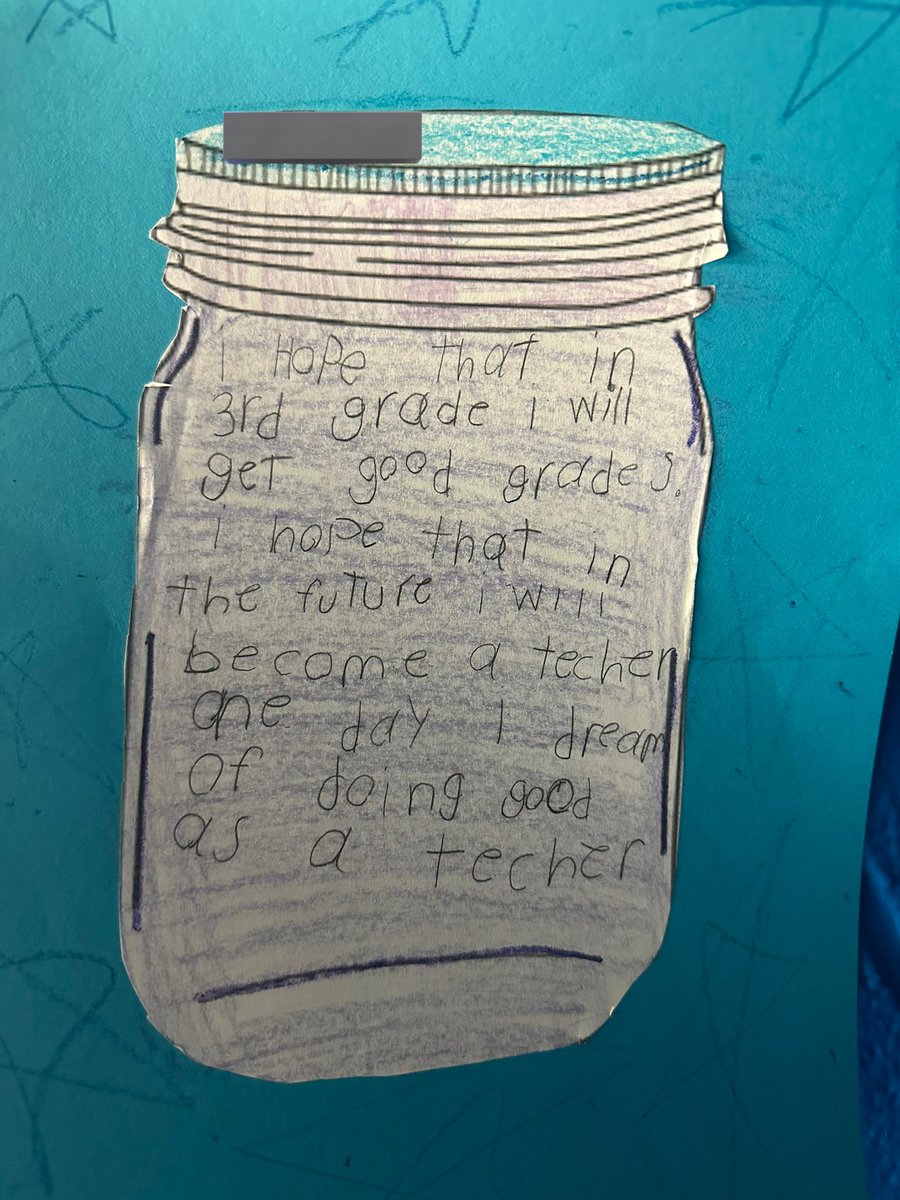 I Hope that in
3rd grade I will
get good grades.
i hope that in
the future i will
become a techer
one day I dream
of doing good
as a techer